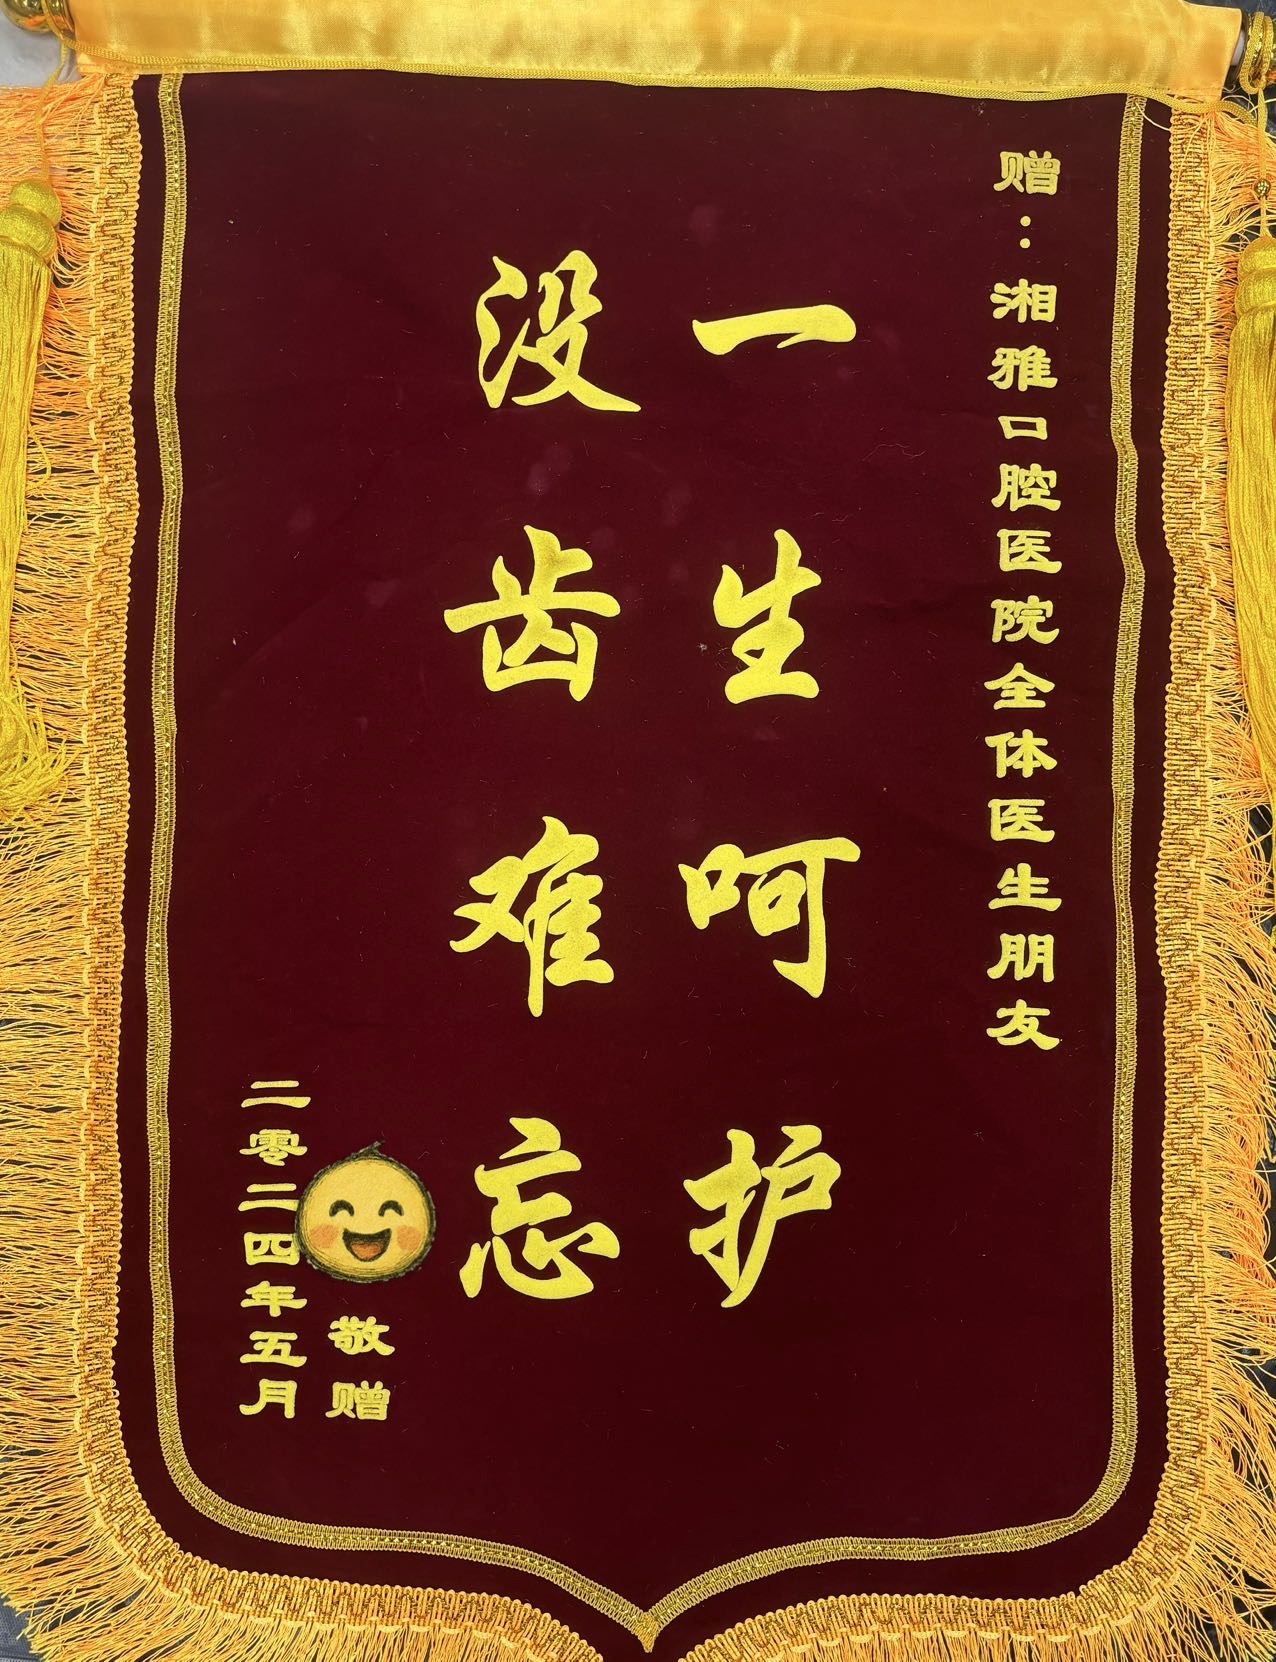 赠：湘雅口腔医院全体医生朋友
一生呵护
没齿难忘
敬赠
二零二四年五月